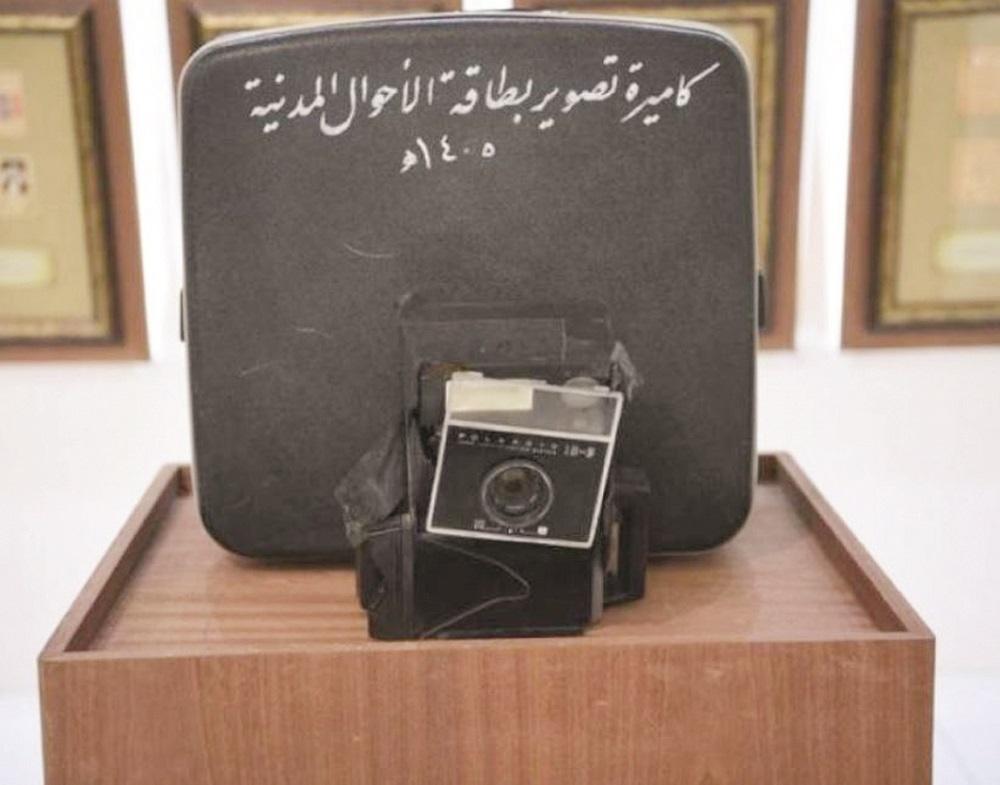 كاميرة تصوير بطاقة الأحوال المدنية
١٤٠٥هـ
POLAROID ID-3